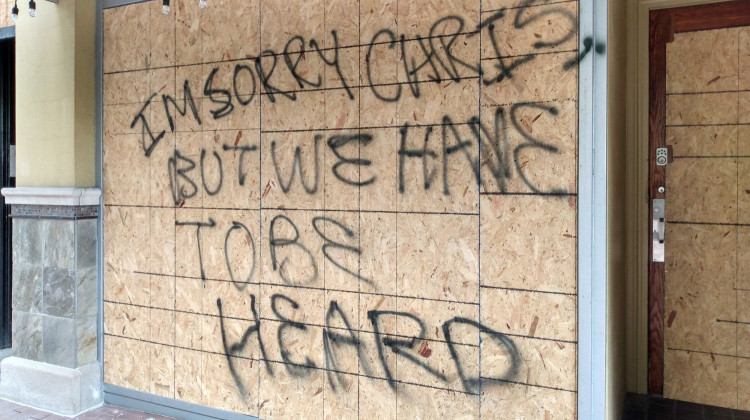 I'M SORRY CHRIS,
BUT WE HAVE
TO BE
HEARD